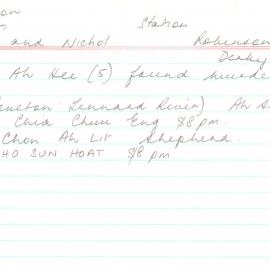 and Nichol Station Robinson
Derby
Ah Hee (5) found murde
Lennard River) Ah S
Chia Chun Eng $8 pm.
Chon Ah Lit Shepherd
HO SUN HOAT $/8 pm